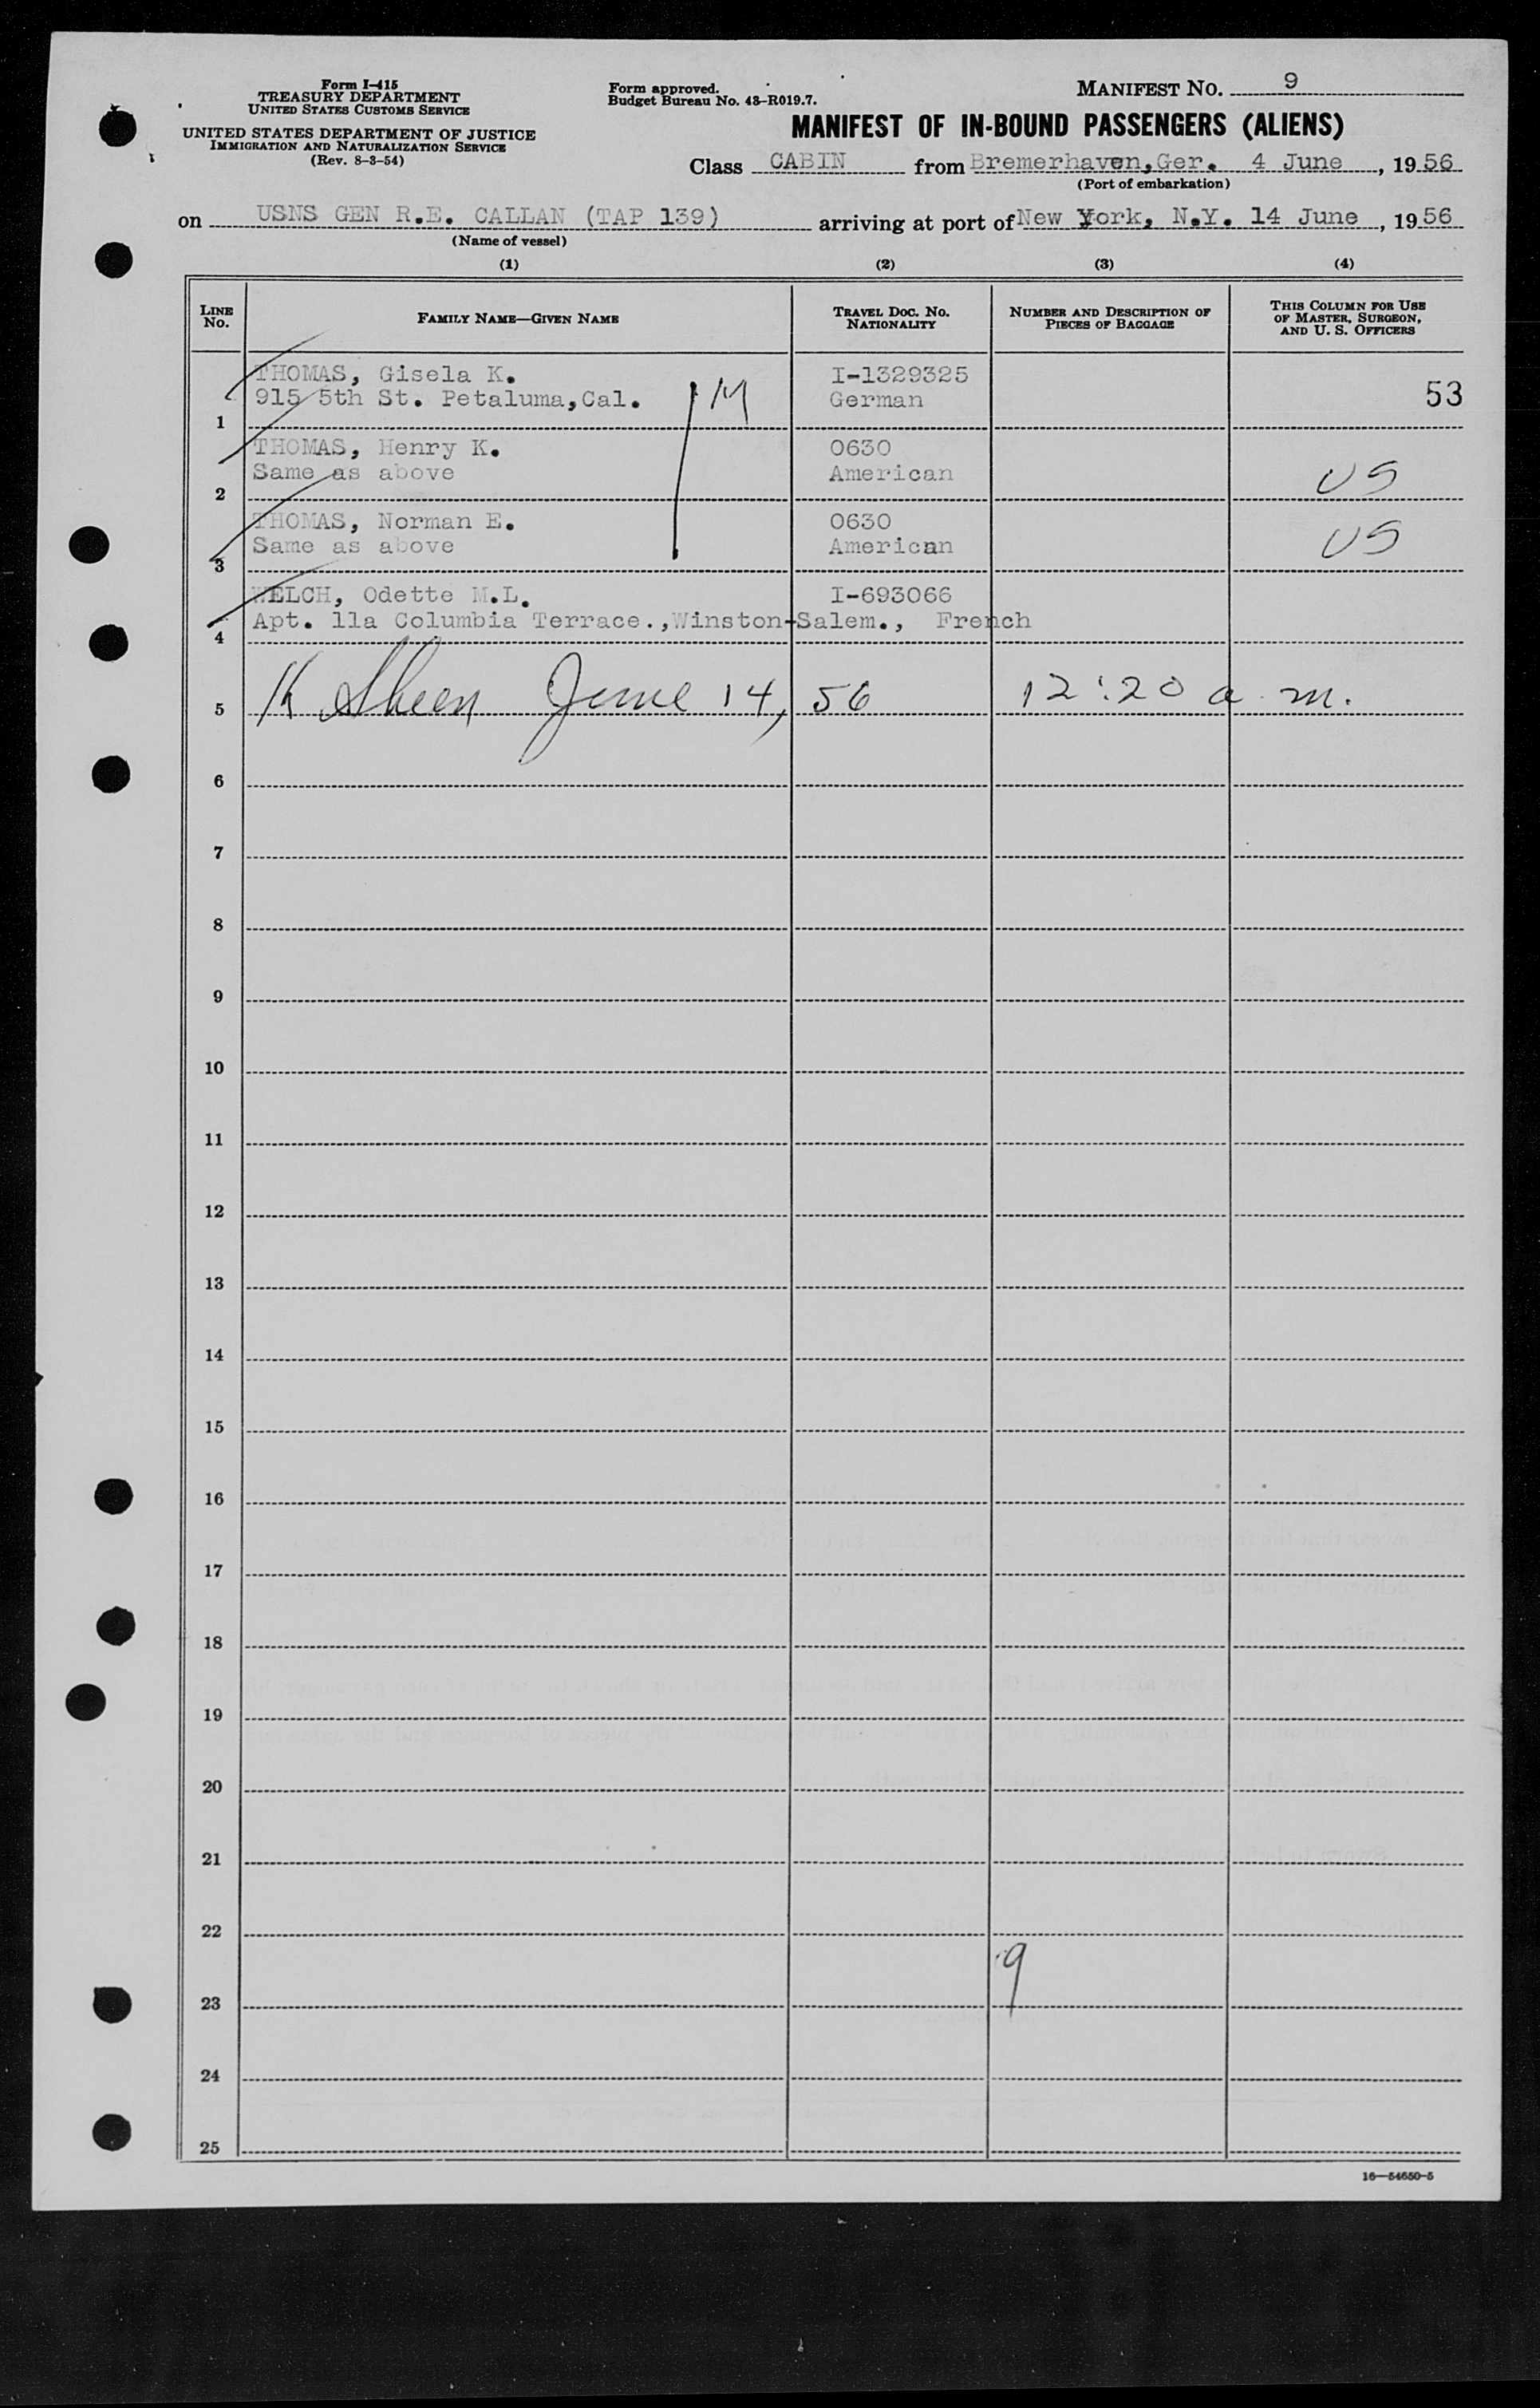 Form I-415
TREASURY DEPARTMENT
UNITED STATES CUSTOMS SERVICE
UNITED STATES DEPARTMENT OF JUSTICE
IMMIGRATION AND NATURALIZATION SERVICE
(Rev. 8-3-54)
Form approved.
Budget Bureau No. 43-R019.7.
MANIFEST NO. 9
MANIFEST OF IN-BOUND PASSENGERS (ALIENS)
Class CABIN from Bremerhaven, Ger. 4 June, 1956
(Port of embarkation)
on USNS GEN R.E. CALLAN (TAP 139) arriving at port of New York, N.Y. 14 June, 1956
(Name of vessel)
(1) (2) (3) (4)
LINE NO. FAMILY NAME—GIVEN NAME TRAVEL DOC. NO. NATIONALITY NUMBER AND DESCRIPTION OF PIECES OF BAGGAGE THIS COLUMN FOR USE OF MASTER, SURGEON, AND U. S. OFFICERS
THOMAS, Gisela K. I-1329325
1 915 5th St. Petaluma, Cal. M German 53
THOMAS, Henry K. 0630
2 Same as above American US
THOMAS, Norman E. 0630
3 Same as above American US
WELCH, Odette M.L. I-693066
4 Apt. 11a Columbia Terrace., Winston-Salem., French
5 K Sheen June 14, 56 12:20 a.m.
6
7
8
9
10
11
12
13
14
15
16
17
18
19
20
21
22
9
23
24
25
16—54650-5